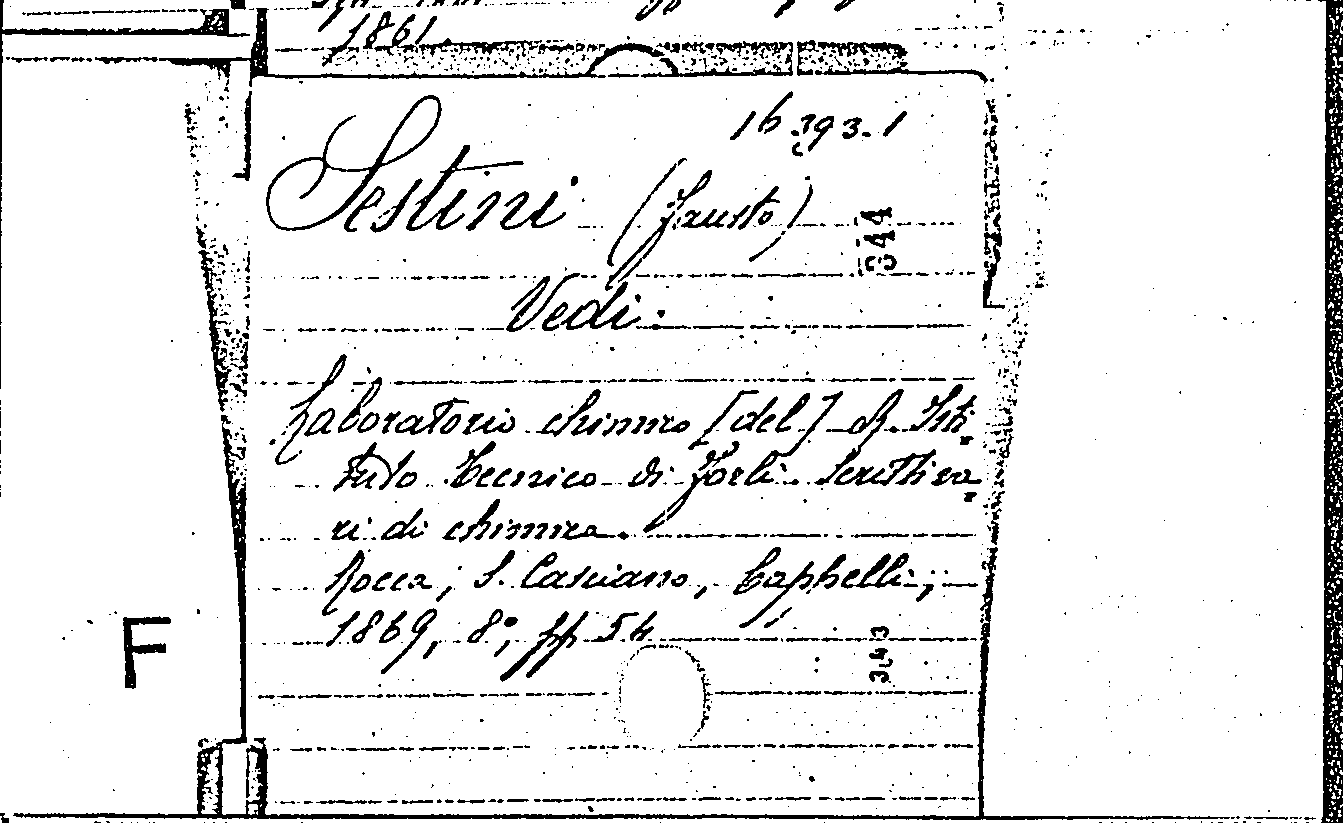 1861.
16 393.1
Sestini (Fausto)
344
Vedi:
Laboratorio chimico [del] R. Isti-
tuto Tecnico di Forlì. Scritti va-
ri di chimica.
Rocca, S. Casciano, Cappelli,
1869, 8°, pp 54
343
F